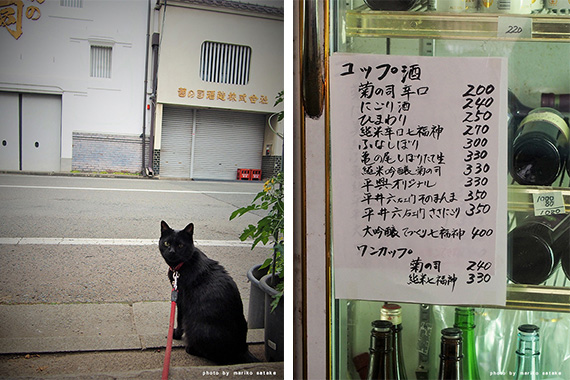 の司
菊の司酒造株式会社
photo by mariko satake
220
コップ酒
菊の司 辛口 200
にごり酒 240
ひまわり 250
純米辛口七福神 270
ふなしぼり 300
亀の尾しぼりたて生 330
純米吟醸 菊の司 330
平興オリジナル 330
平井六右エ門 そのまんま 350
平井六右エ門 ささにごり 350
大吟醸 てづくり七福神 400
ワンカップ
菊の司 240
純米七福神 330
photo by mariko satake